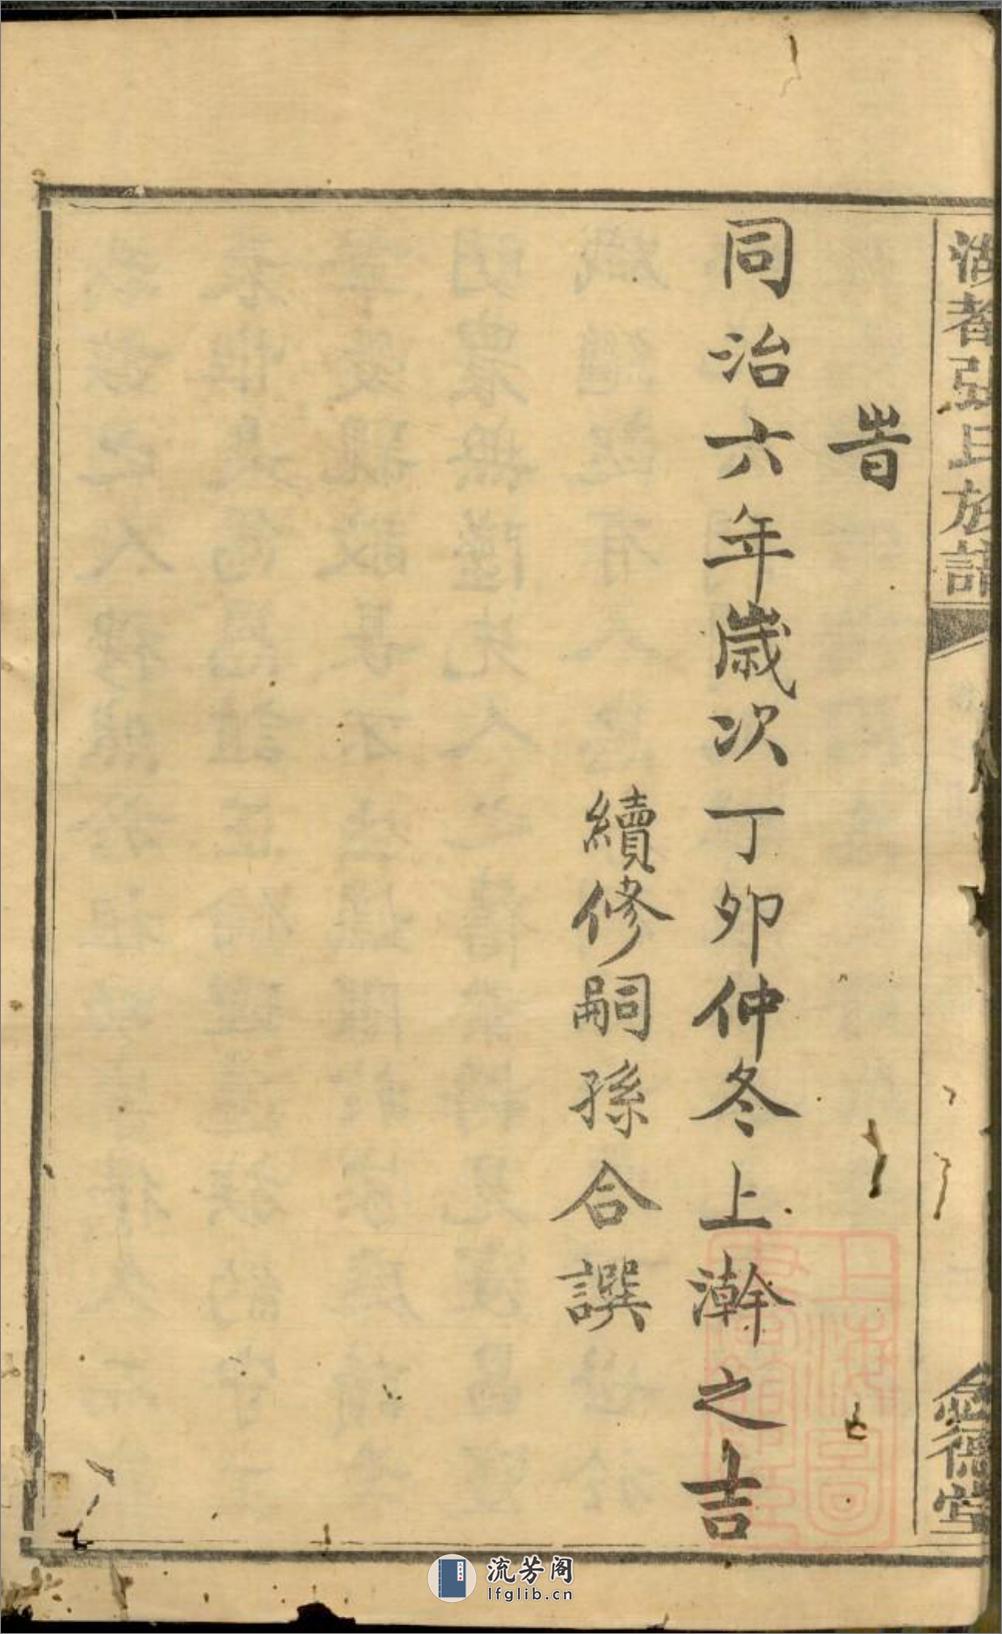 旹
同治六年歲次丁卯仲冬上澣之吉
續修嗣孫合譔
都張氏族譜
德堂
上海圖書館藏
流芳阁
lfglib.cn